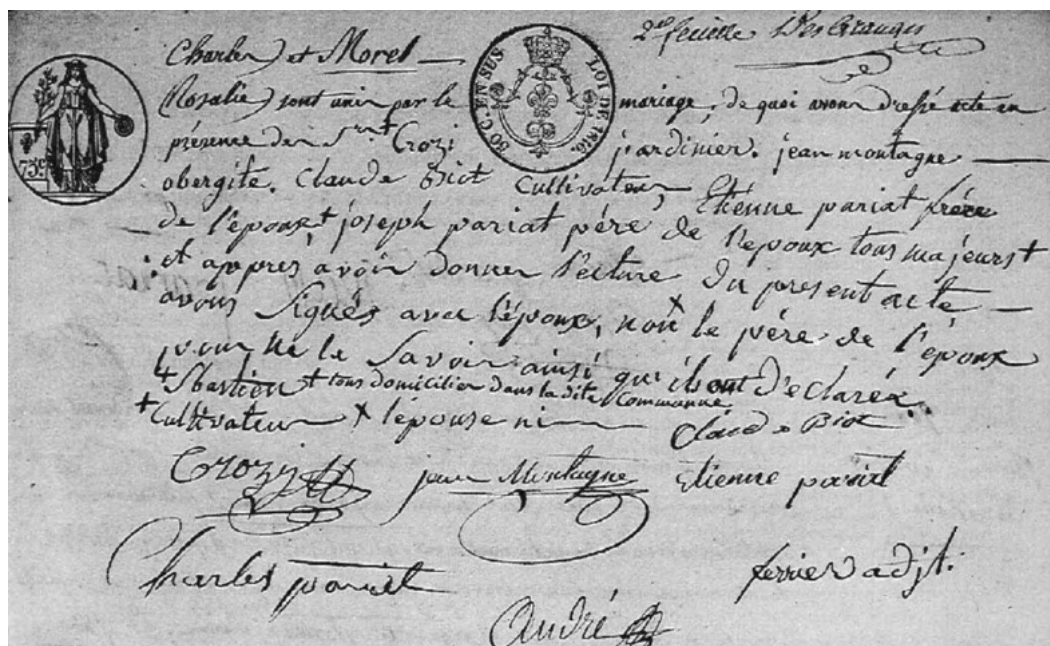 2e feuille Des Granges
Charles et Morel
Rosalie sont unis par le mariage, de quoi avons dressé acte en
présence de Srs + Crozi jardinier. jean montagne
obergite. Claude Biot Cultivateur, Etienne pariat frére
de l'epoux + joseph pariat pére de l'epoux tous majeurs +
et apprés avoir donner lecture du present acte
avons Signés avec l'époux, non x le pére de l'époux
pour ne le Savoir ainsi qu'ils ont D'eclarés.
4 Sbastien + tous domicilier dans la dite Commune
+ Cultivateur x l'épouse ni
Claude Biot
Crozy jean Montagne Etienne pariat
Charles pariat ferrier adjt.
André
75c.
50 C. EN SUS LOI DE 1816.